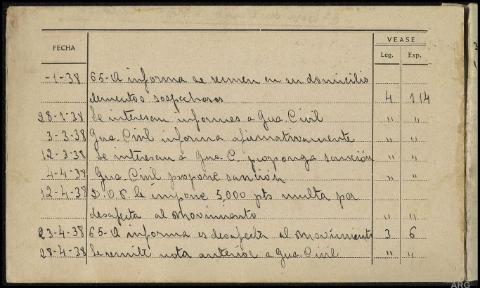 VEASE
FECHA Leg. Exp.
-1-38 65-A informa se reunen en su domicilio
elementos sospechosos 4 114
28-1-38 Se interesan informes a Gua. Civil " "
3-3-38 Gua. Civil informa afirmativamente " "
12-3-38 Se interesa á Gua. C. proponga sanción " "
4-4-38 Gua. Civil propone sanción " "
12-4-38 D.O.P. le impone 5,000 pts multa por
desafecta al Movimiento " "
23-4-38 65-A informa es desafecta al Movimiento 3 6
28-4-38 Se remite nota anterior a Gua. Civil " "